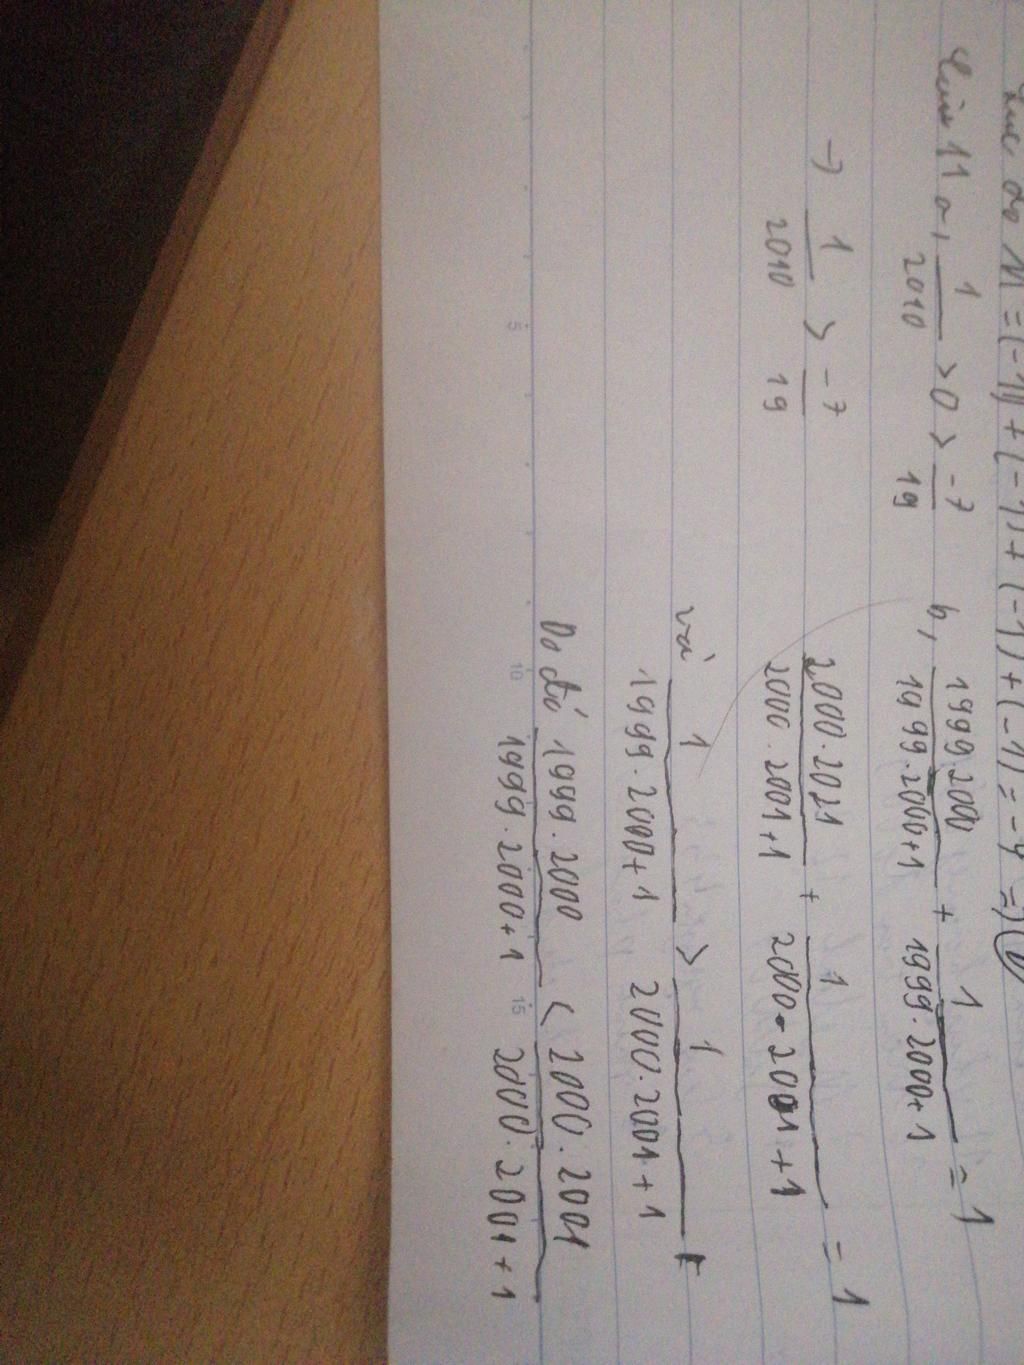 M = (-1) + (-1) + (-1) + (-1) = -4 =)
11 a, 1/2010 > 0 > -7/19 b, 1999.2000/1999.2000+1 + 1/1999.2000+1 = 1
→ 1/2010 > -7/19 2000.2021/2000.2001+1 + 1/2000.2001+1 = 1
và 1/1999.2000+1 > 1/2000.2001+1
Do đó 1999.2000/1999.2000+1 < 2000.2001/2000.2001+1
5 10 15